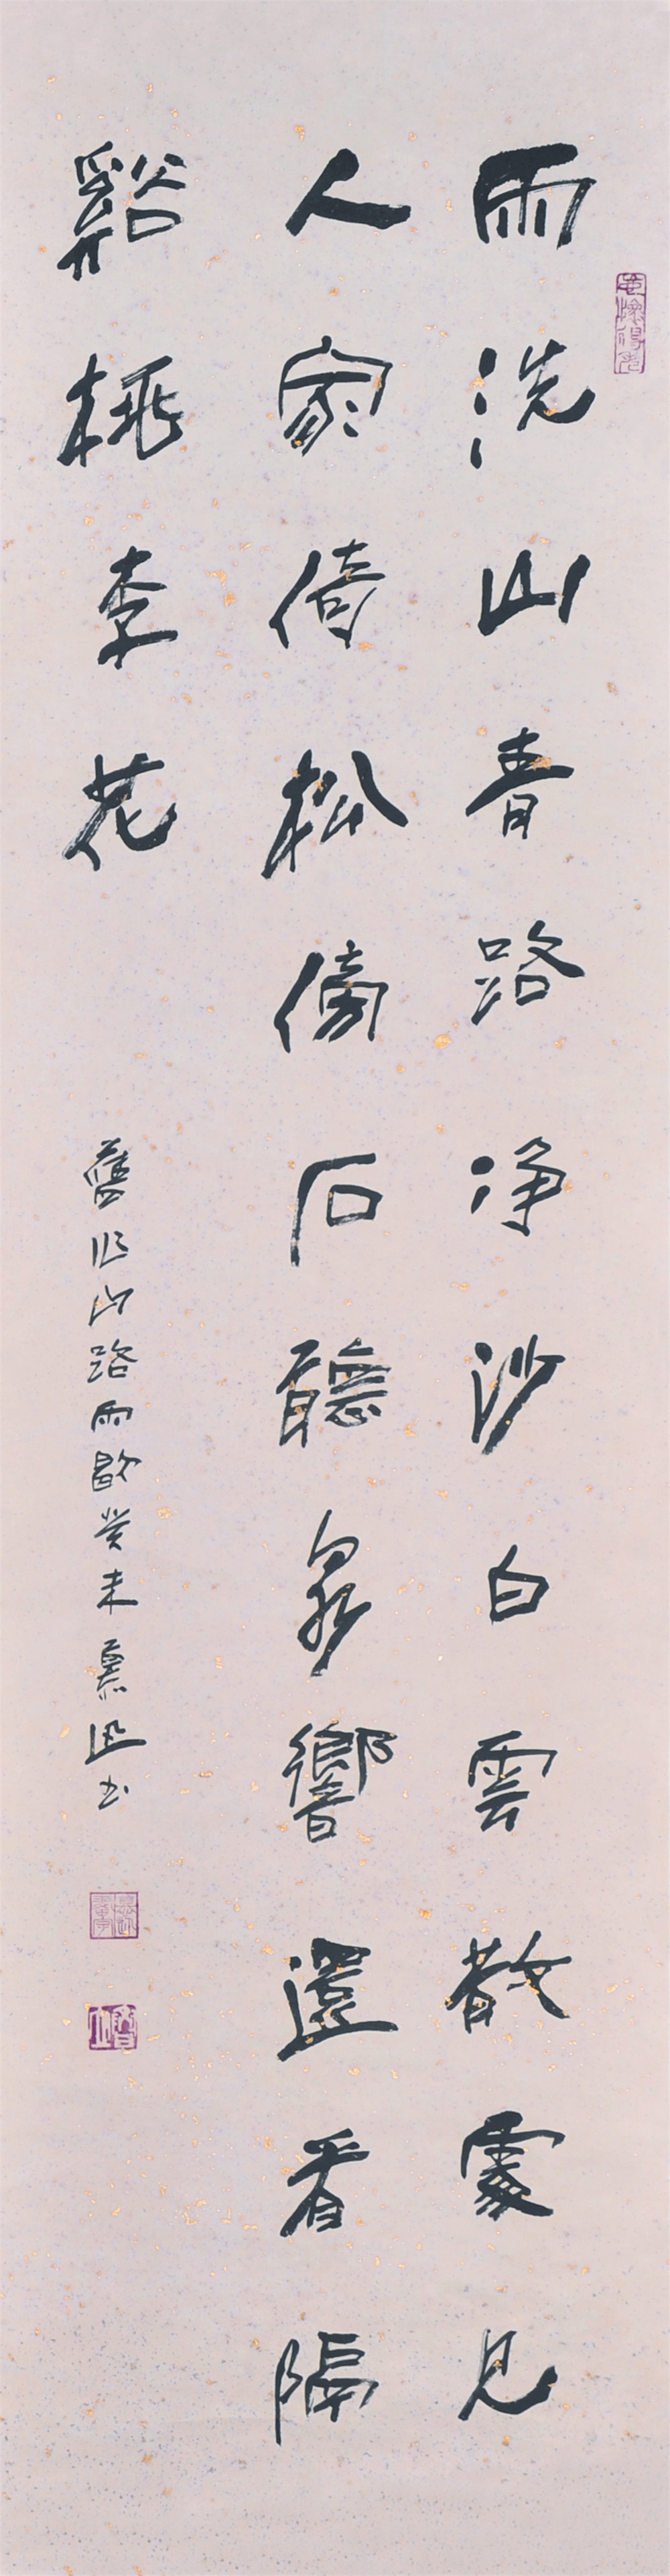 雨洗山青路净沙白雲散處見
人家倚松傍石聽泉響還看隔
谿桃李花
舊作山路雨歇癸未慕迅书